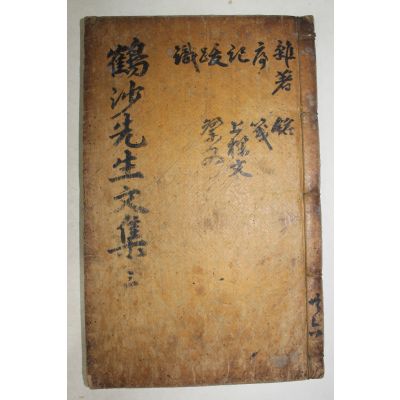 雜著 銘
序 箋
記 上樑文
跋 祭文
識
鶴沙先生文集 三
共六